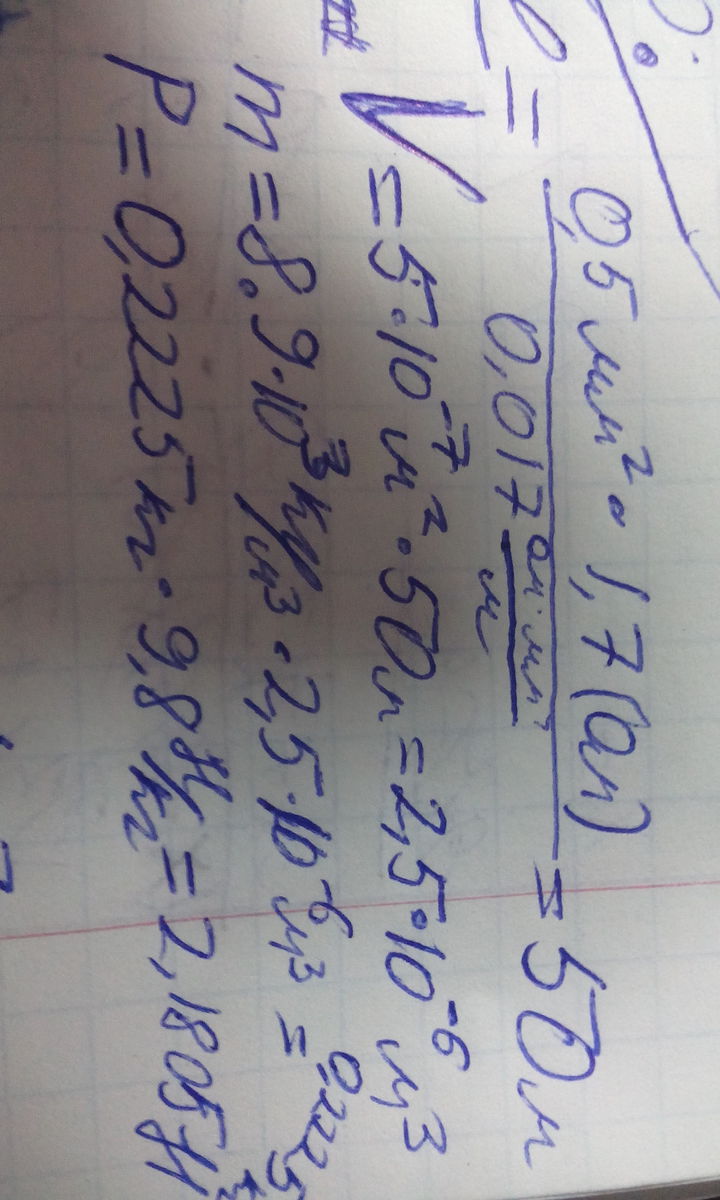 l = 0,5 мм² · 1,7 (Ом) = 50 м
0,017 Ом·мм²
м
V = 5·10⁻⁷ м² · 50 м = 2,5·10⁻⁶ м³
m = 8.9·10³ кг/м³ · 2,5·10⁻⁶ м³ = 0,2225
P = 0,2225 кг · 9,8 Н/кг = 2,1805 Н